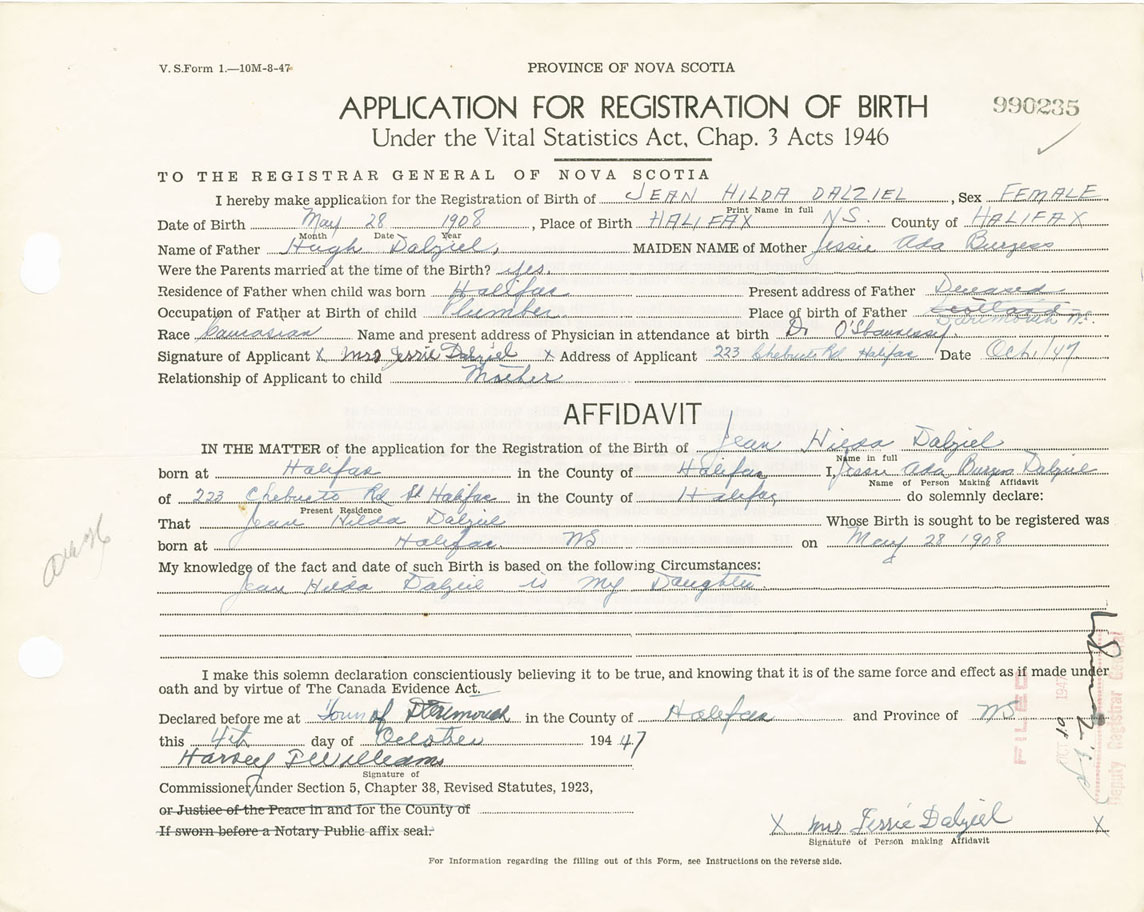 V. S.Form 1.—10M-8-47
PROVINCE OF NOVA SCOTIA
APPLICATION FOR REGISTRATION OF BIRTH
990235
Under the Vital Statistics Act, Chap. 3 Acts 1946
TO THE REGISTRAR GENERAL OF NOVA SCOTIA
I hereby make application for the Registration of Birth of JEAN HILDA DALZIEL, Sex FEMALE
Print Name in full
Date of Birth May 28 1908, Place of Birth HALIFAX N.S. County of HALIFAX
Month Date Year
Name of Father Hugh Dalziel, MAIDEN NAME of Mother Jessie Ada Burgess
Were the Parents married at the time of the Birth? yes.
Residence of Father when child was born Halifax Present address of Father Deceased
Occupation of Father at Birth of child Plumber. Place of birth of Father Scotland
Dartmouth N.S.
Race Caucasian Name and present address of Physician in attendance at birth Dr O'Shaunessy.
Signature of Applicant X Mrs Jessie Dalziel X Address of Applicant 223 Chebucto Rd Halifax Date Oct. 1/47
Relationship of Applicant to child Mother
AFFIDAVIT
IN THE MATTER of the application for the Registration of the Birth of Jean Hilda Dalziel
Name in full
born at Halifax in the County of Halifax I, Jessie Ada Burgess Dalziel
Name of Person Making Affidavit
of 223 Chebucto Rd Halifax in the County of Halifax do solemnly declare:
Present Residence
That Jean Hilda Dalziel Whose Birth is sought to be registered was
born at Halifax. NS on May 28 1908
My knowledge of the fact and date of such Birth is based on the following Circumstances:
Jean Hilda Dalziel is My Daughter.
I make this solemn declaration conscientiously believing it to be true, and knowing that it is of the same force and effect as if made under
oath and by virtue of The Canada Evidence Act.
Declared before me at Town of Dartmouth in the County of Halifax and Province of NS
this 4th day of October 194 47
Harvey Williams
Signature of
Commissioner under Section 5, Chapter 38, Revised Statutes, 1923,
or Justice of the Peace in and for the County of
If sworn before a Notary Public affix seal.
X Mrs Jessie Dalziel X
Signature of Person making Affidavit
For Information regarding the filling out of this Form, see Instructions on the reverse side.
FILED
Deputy Registrar General